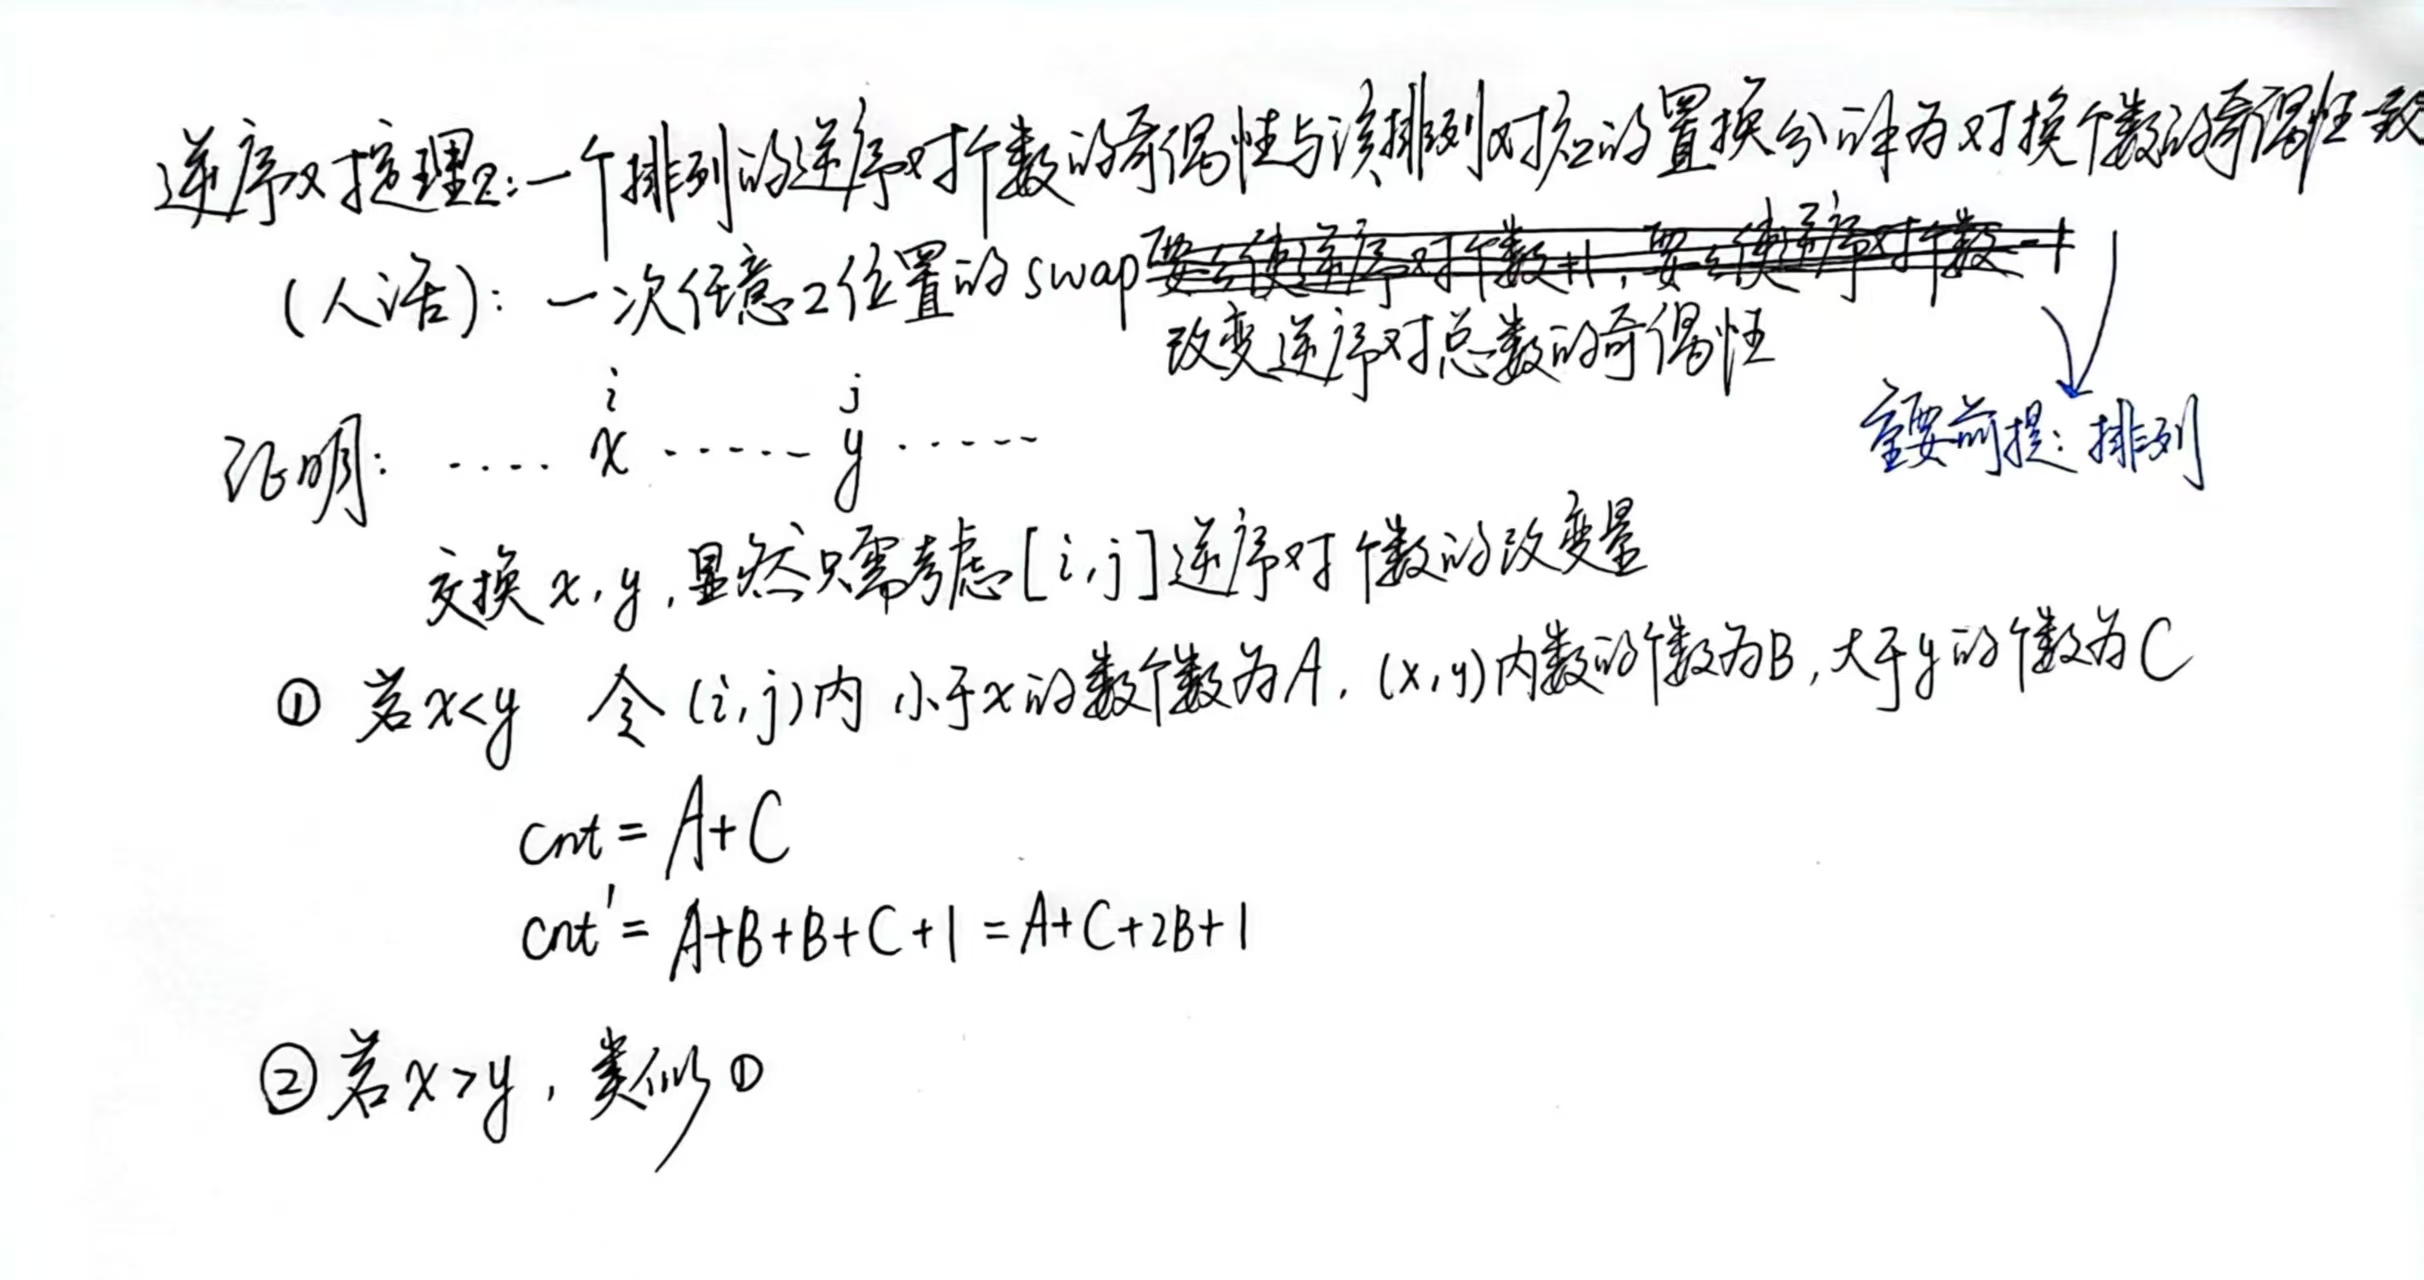 逆序对定理2:一个排列的逆序对个数的奇偶性与该排列对应的置换分解为对换个数的奇偶性一致
(人话): 一次任意2位置的swap 要么使逆序对个数+1, 要么使逆序对个数-1
改变逆序对总数的奇偶性
重要前提: 排列
i j
证明: .... x ...... y ......
交换x,y,显然只需考虑[i,j]逆序对个数的改变量
① 若x<y 令(i,j)内小于x的数个数为A, (x,y)内数的个数为B,大于y的个数为C
cnt = A+C
cnt' = A+B+B+C+1 = A+C+2B+1
② 若x>y, 类似①